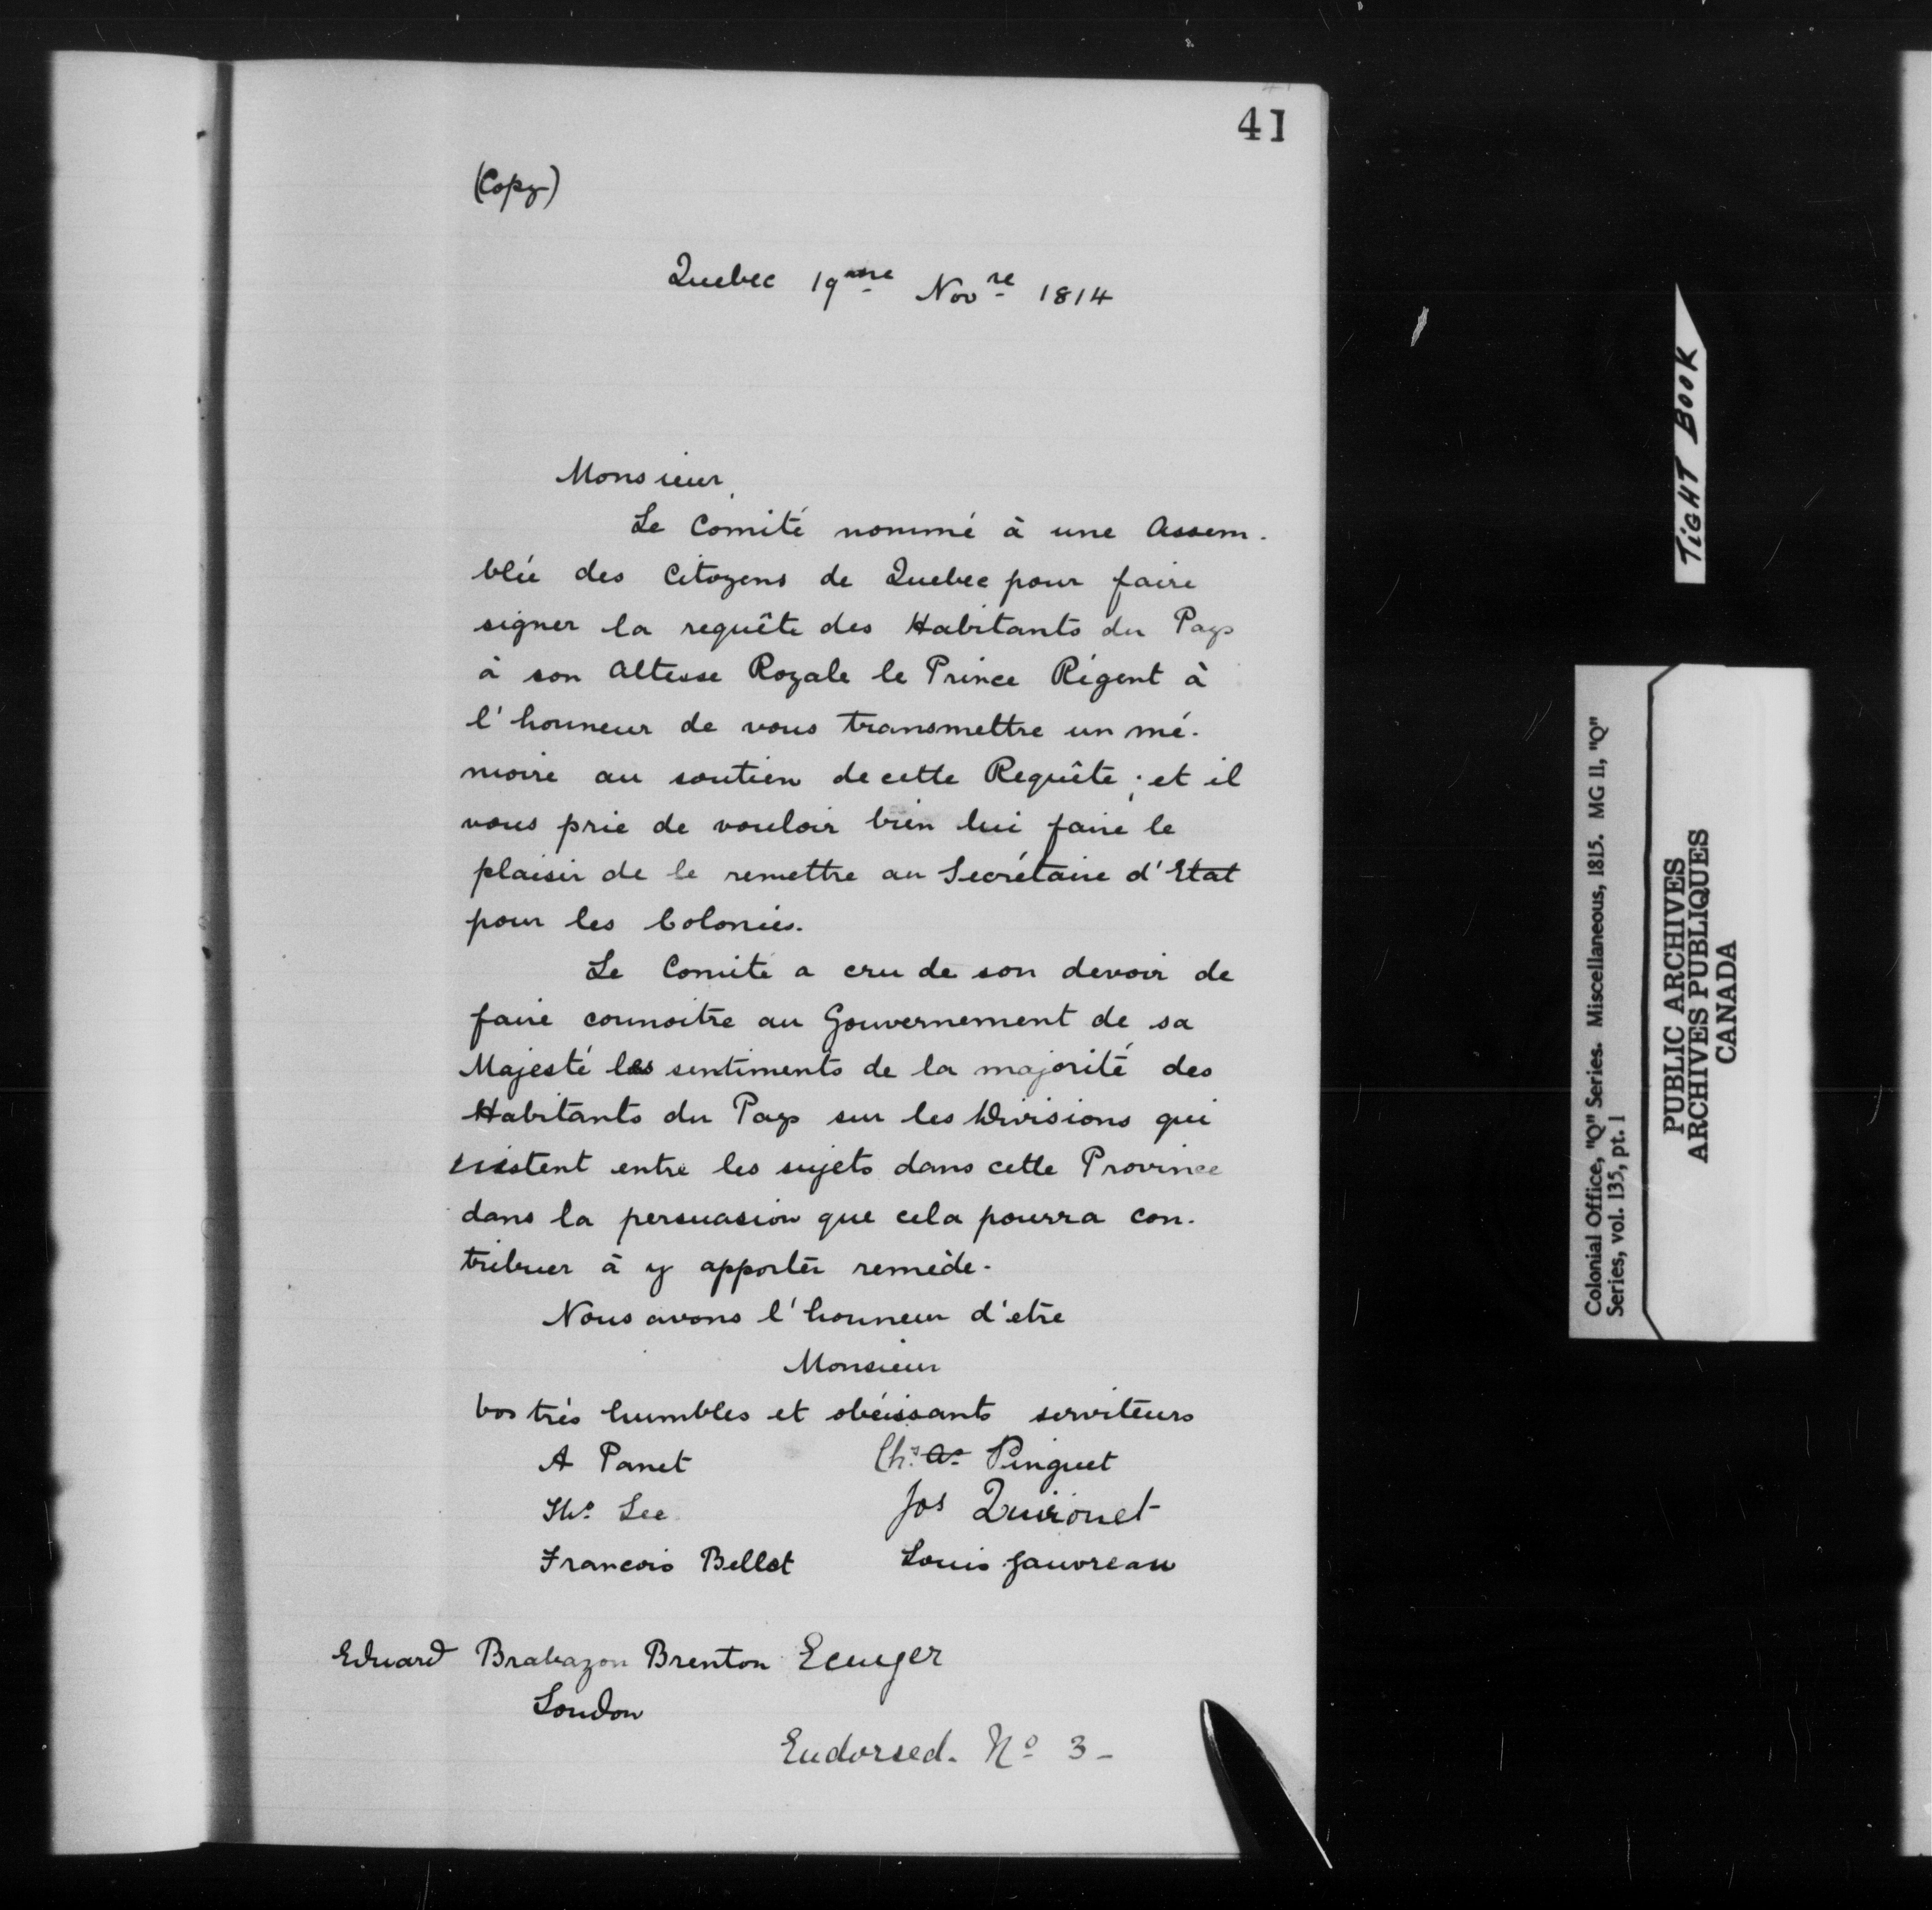 41
(Copy)
Quebec 19me Novre 1814
Monsieur,
Le Comité nommé à une Assem-
blée des Citoyens de Quebec pour faire
signer la requête des Habitants du Pays
à son Altesse Royale le Prince Régent à
l'honneur de vous transmettre un mé-
moire au soutien de cette Requête; et il
vous prie de vouloir bien lui faire le
plaisir de le remettre au Secrétaire d'Etat
pour les Colonies.
Le Comité a cru de son devoir de
faire connoitre au Gouvernement de sa
Majesté les sentiments de la majorité des
Habitants du Pays sur les Divisions qui
existent entre les sujets dans cette Province
dans la persuasion que cela pourra con-
tribuer à y apporter remède.
Nous avons l'honneur d'etre
Monsieur
Vos très humbles et obéissants serviteurs
A Panet Chs. As. Pinguet
Ths. Lee Jos Quirouet
Francois Bellet Louis Gauvreau
Edward Brabazon Brenton Ecuyer
London
Endorsed. No 3-
TIGHT BOOK
Colonial Office, "Q" Series. Miscellaneous, 1815. MG 11, "Q"
Series, vol. 135, pt. 1
PUBLIC ARCHIVES
ARCHIVES PUBLIQUES
CANADA